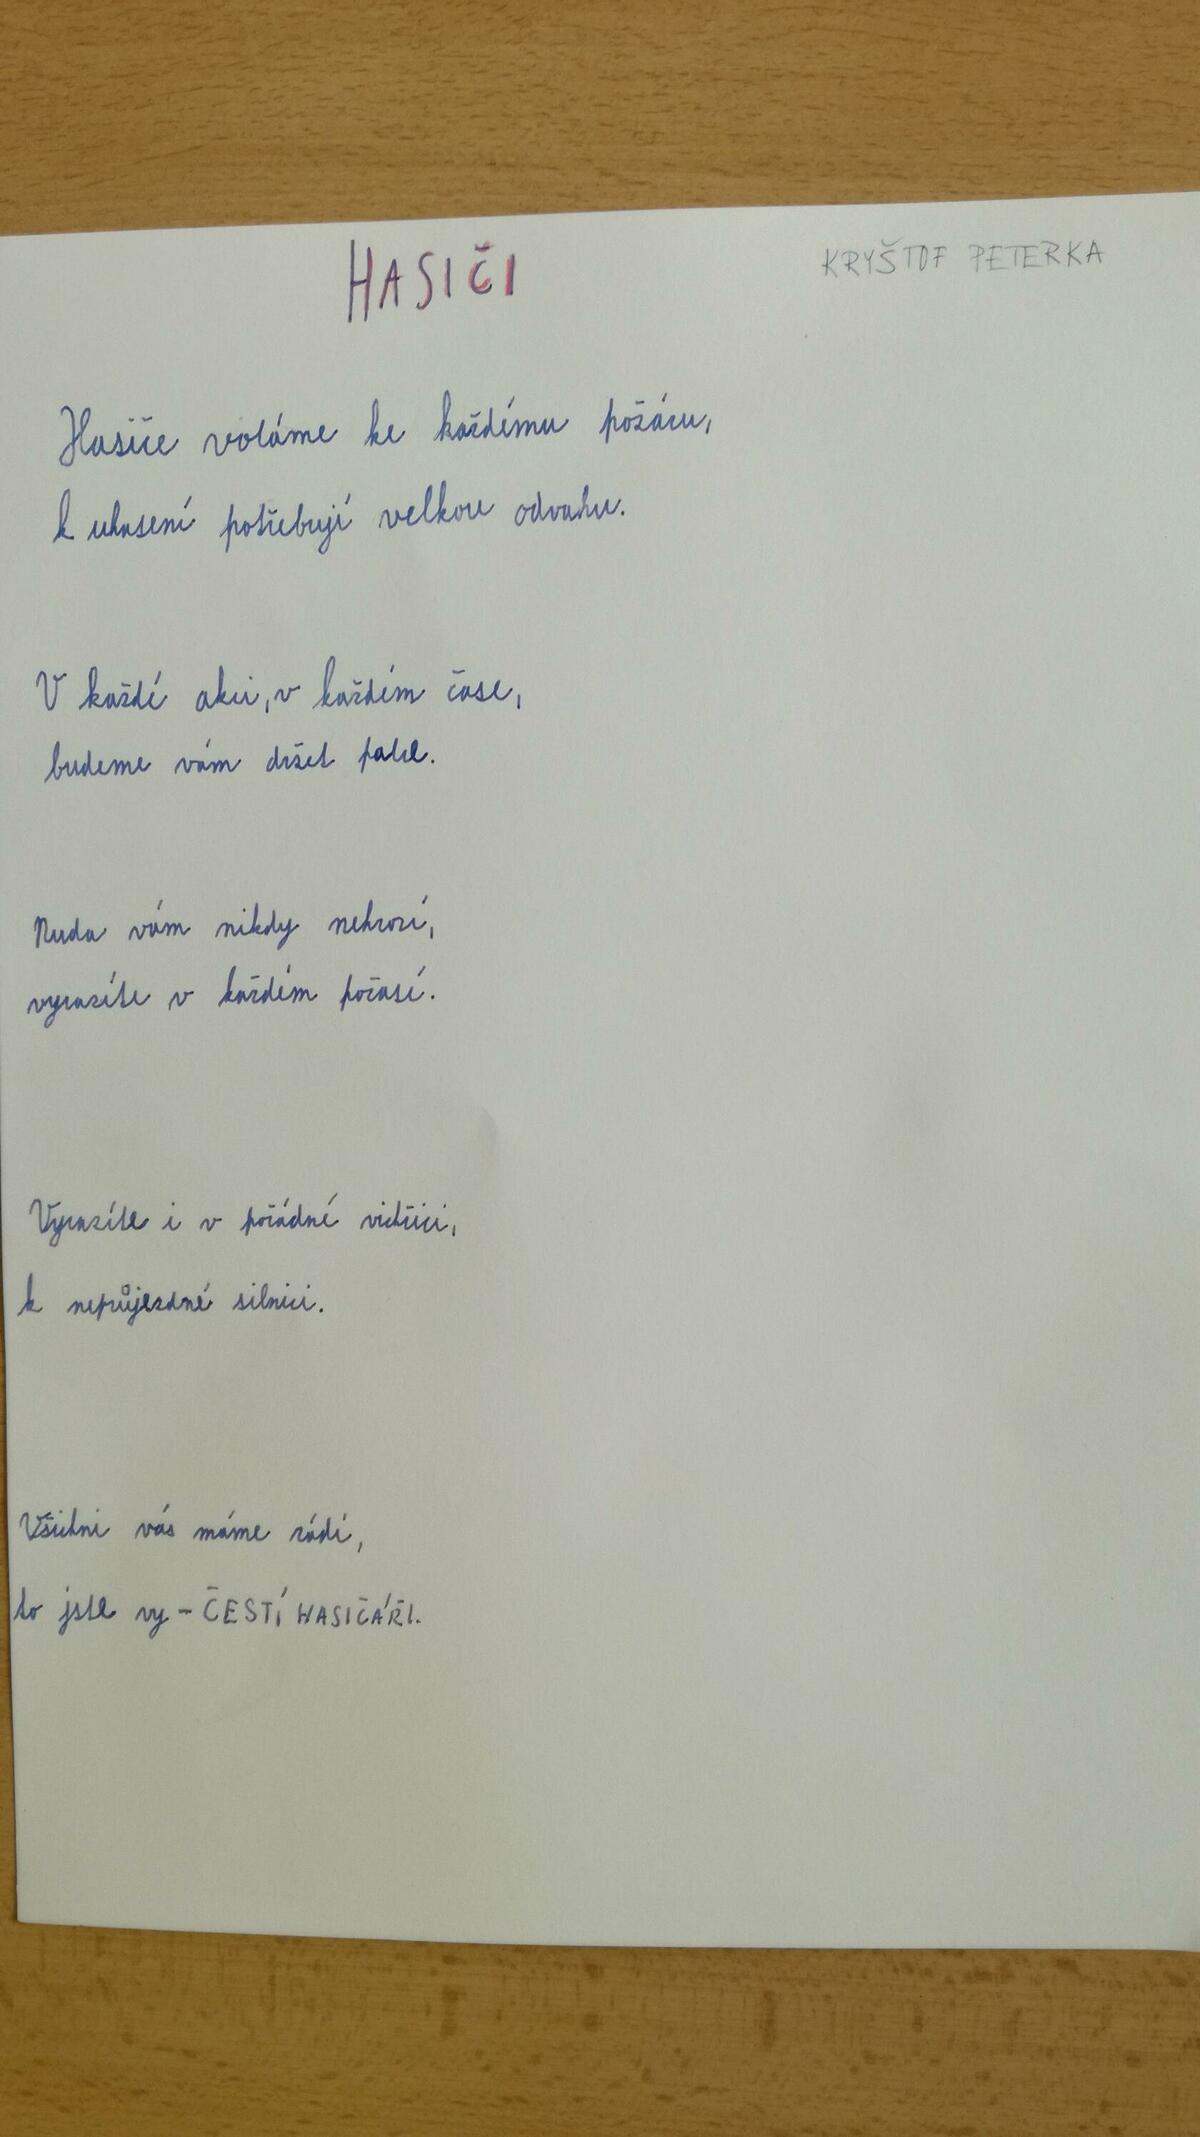 HASIČI
KRYŠTOF PETERKA
Hasiče voláme ke každému požáru,
k uhasení potřebují velkou odvahu.
V každé akci, v každém čase,
budeme vám držet palce.
Nuda vám nikdy nehrozí,
vyrazíte v každém počasí.
Vyrazíte i v pořádné vichřici,
k neprůjezdné silnici.
Všichni vás máme rádi,
to jste vy - ČESTÍ HASIČÁŘI.